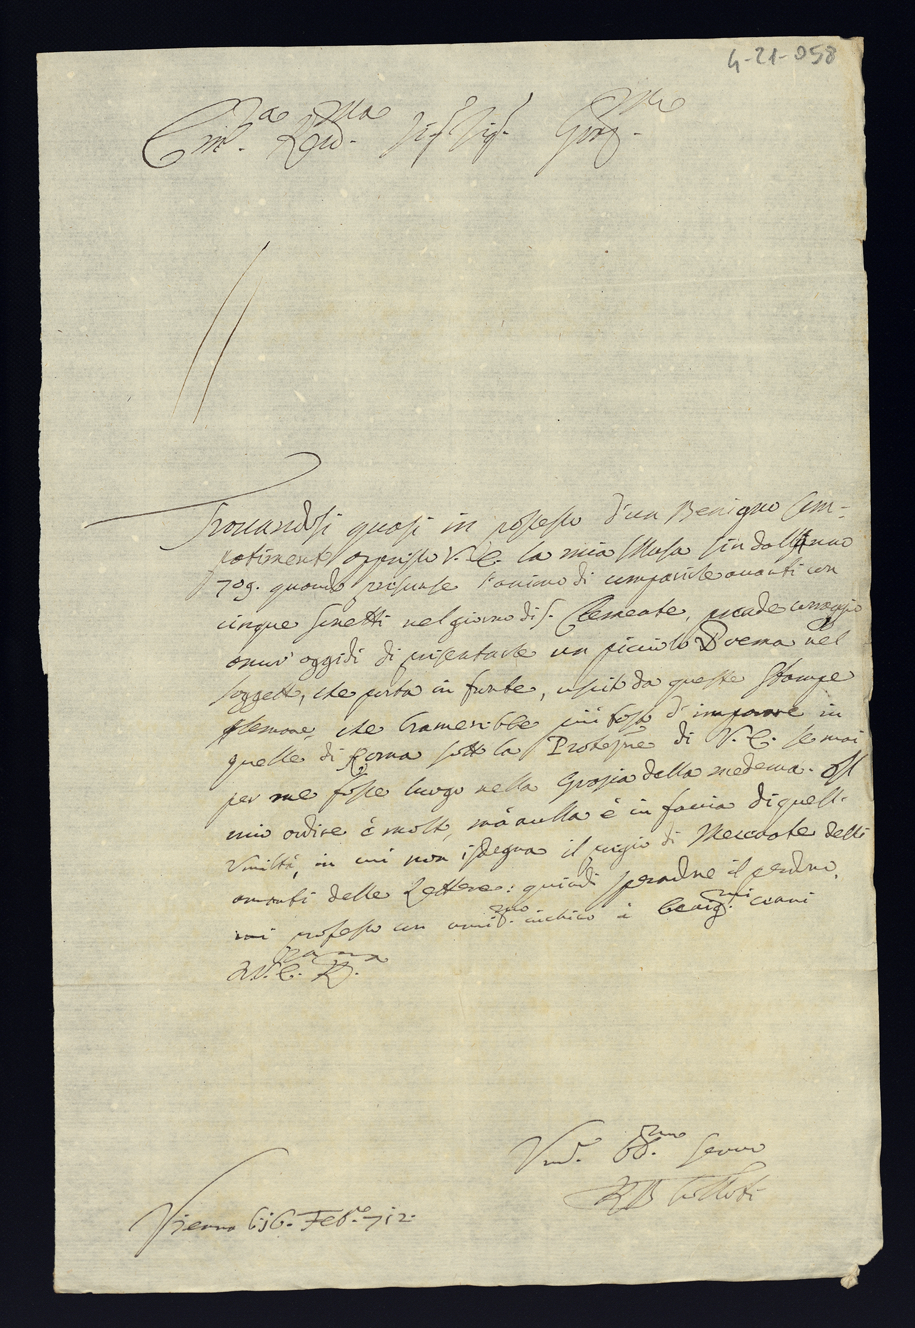 4-21-058
Em.ᵃ Rev.ᵐᵃ Sig.ʳ Sig.ʳ
Trouandosi quasi in possesso d'un Benigno Com-
patimento appresso V. E. la mia Musa sin dall'Anno
709. quando presunse l'animo di comparirle auanti con
cinque Sonetti nel giorno di S. Clemente, prende coraggio
oggidi di presentarle un picciolo Poema nel
soggetto, che porta in fronte, uscito da queste Stampe
che bramerebbe più tosto di in
quelle di Roma sotto la Protez.ⁿᵉ di V. E. se mai
per me fosse luogo nella Grazia della medema. Il
mio ardire è molto, mà nulla è in faccia di quell'-
Vmiltà, in cui non isdegna il pregio di Mecenate delli
amanti delle Lettere: quindi il perdono,
mi professo con inchino
V. E. R.ᵐᵃ
Vm.ᵒ Obb.ᵐᵒ Seruo
Vienna 6. Feb.ᵒ 712.